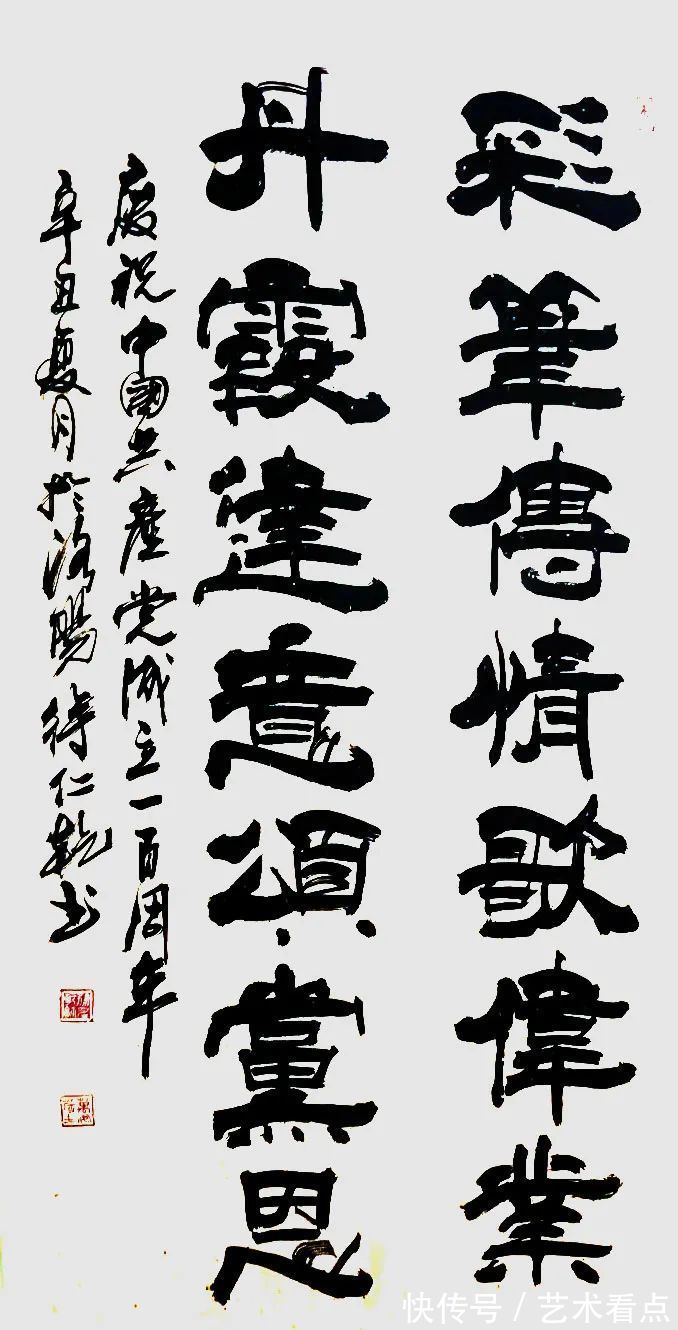 彩筆傳情歌偉業
丹霞達意頌黨恩
慶祝中國共產党成立一百周年
辛丑夏月於洛陽 仁乾书
快传号 / 艺术看点